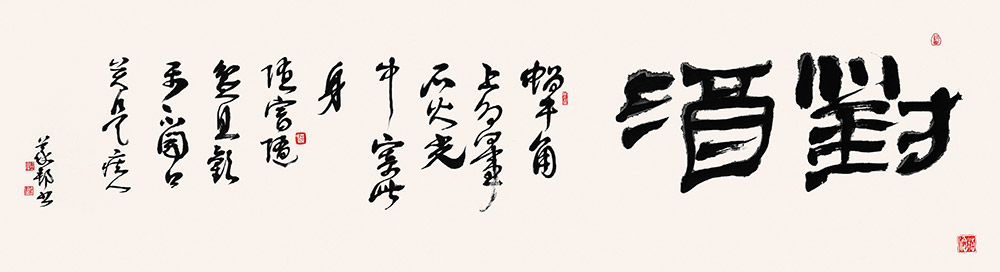 對酒
蝸牛角
上爭何事
石火光
中寄此
身
隨富隨
貧且歡
樂不開口
笑是痴人